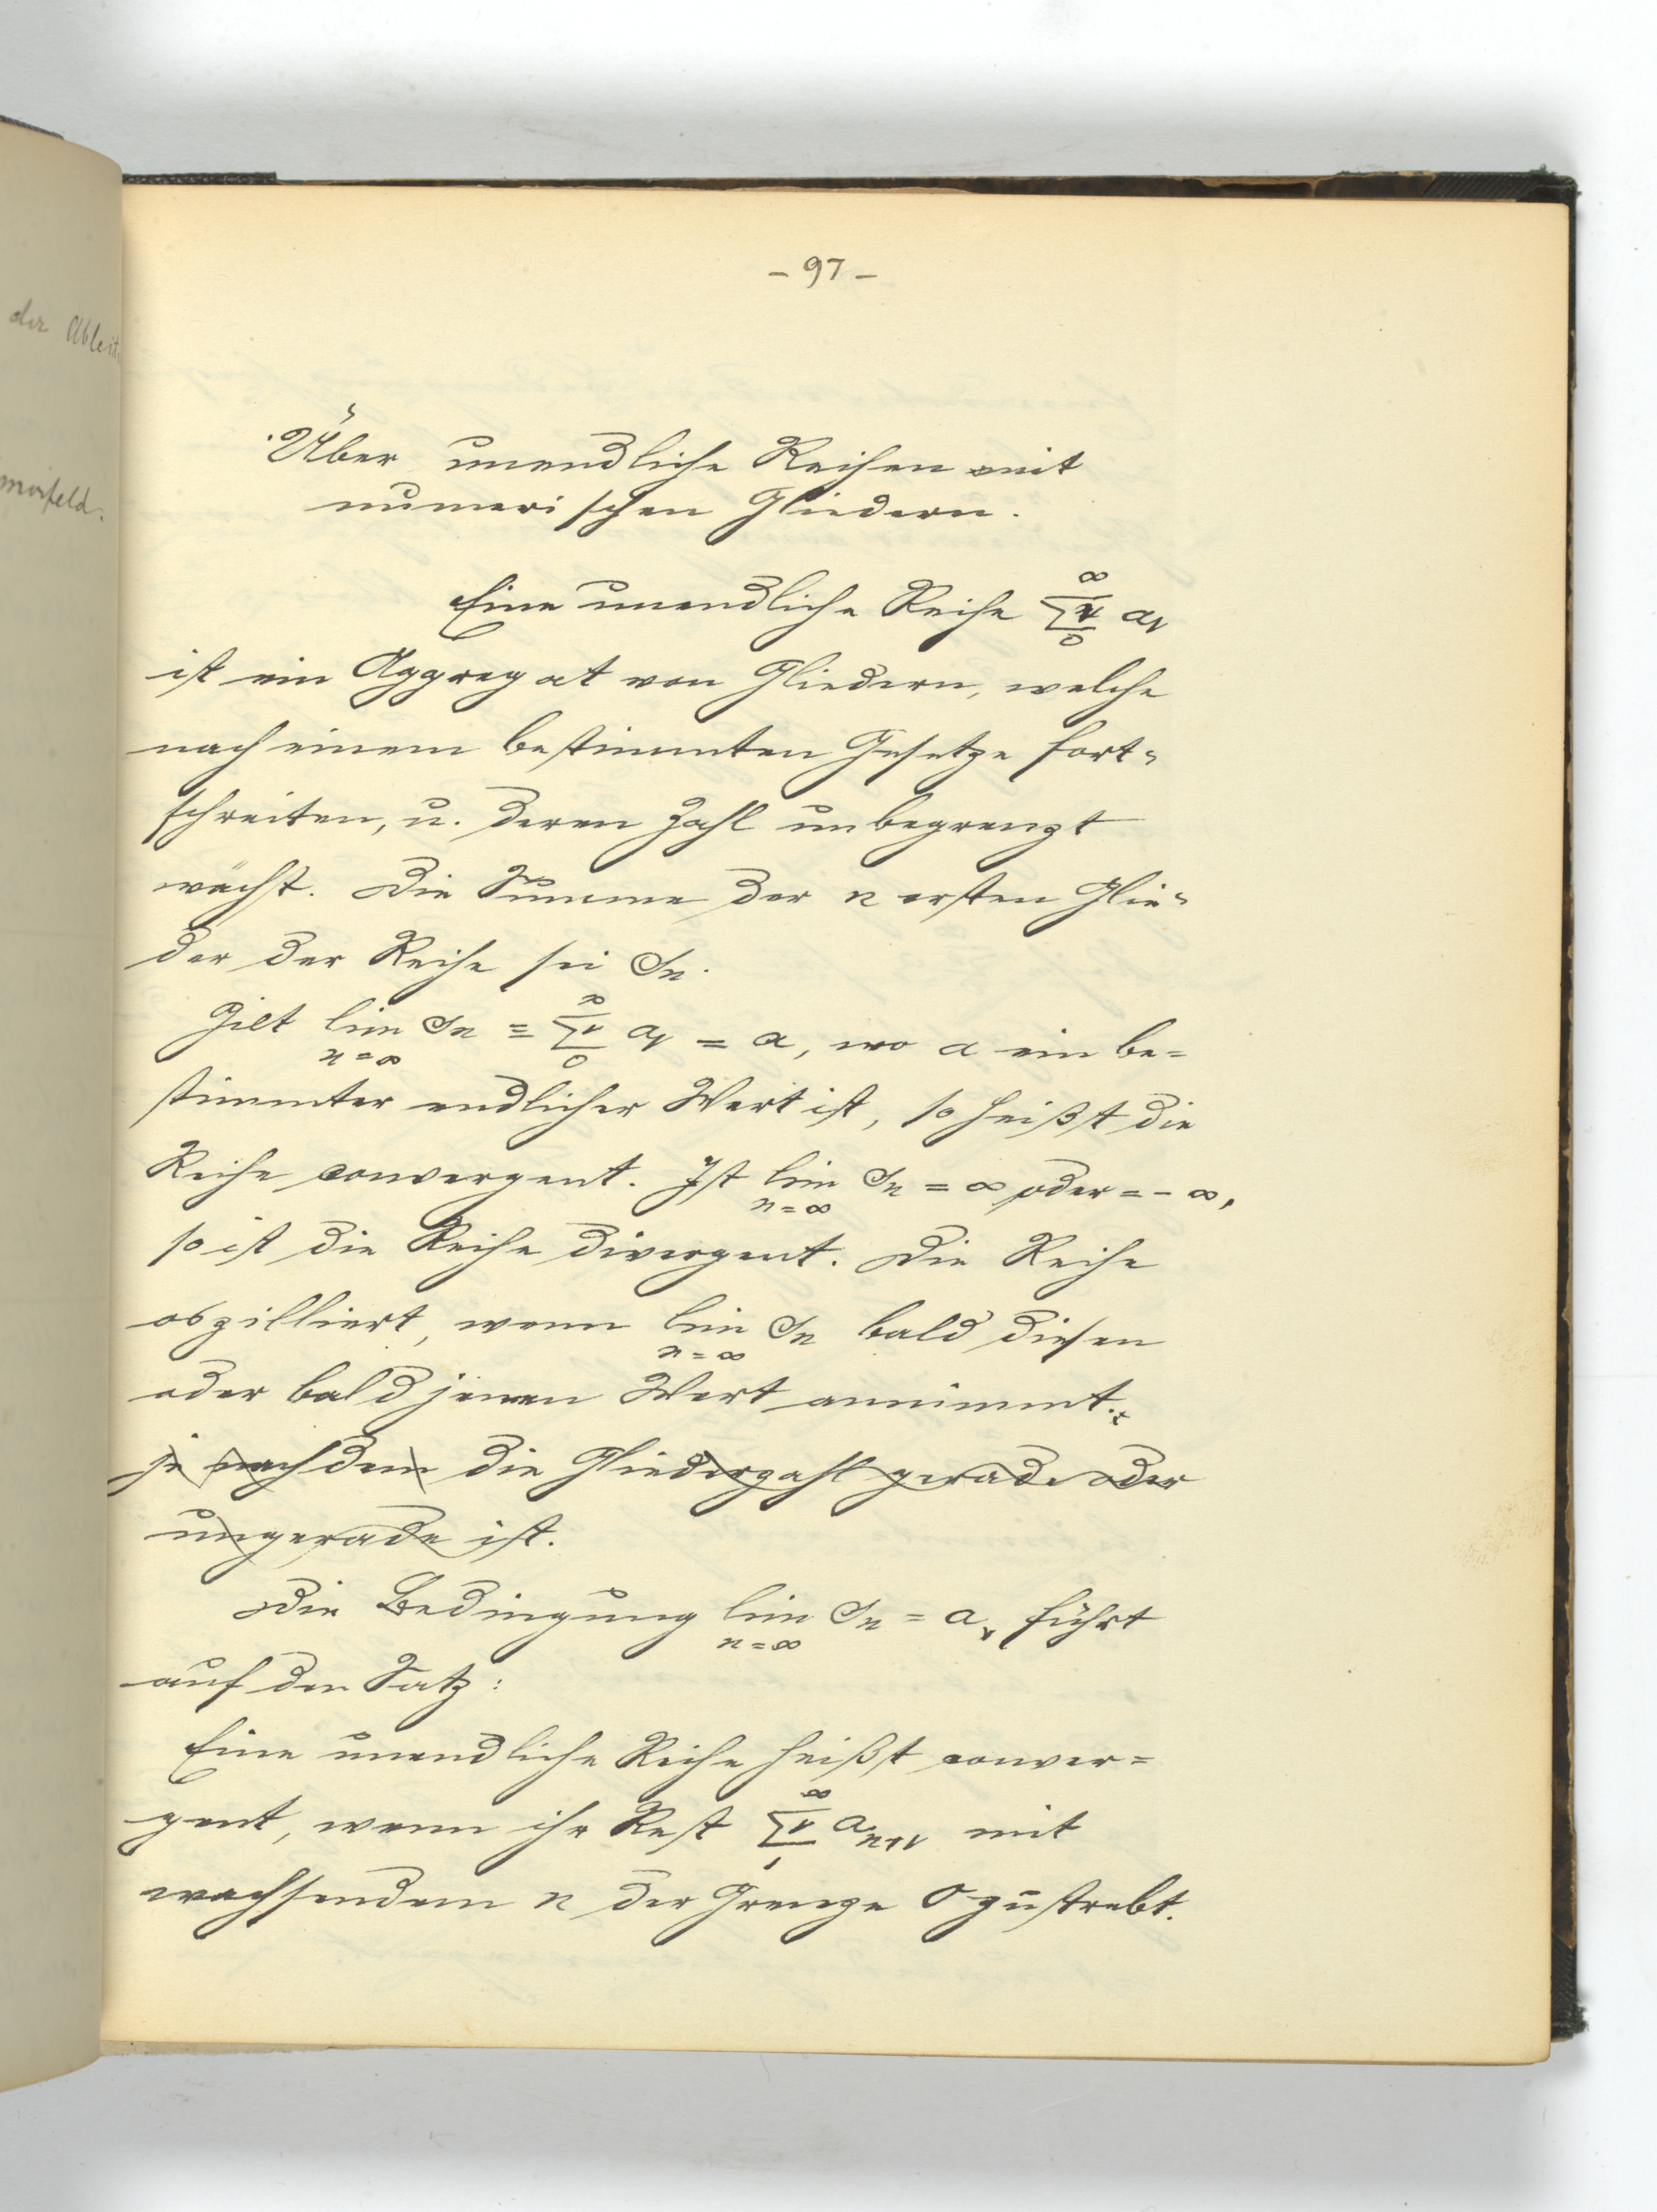 der Ableit.
- 97 -
Über unendliche Reihen mit
numerischen Gliedern.
Eine unendliche Reihe ∞ Σν 0 aν
ist ein Aggregat von Gliedern, welche
nach einem bestimmten Gesetze fort=
schreiten, u. deren Zahl unbegrenzt
wächst. Die Summe der n ersten Glie=
der der Reihe sei Sn.
Gilt lim n=∞ Sn = ∞ Σν 0 aν = a, wo a ein be=
stimmter endlicher Wert ist, so heißt die
Reihe convergent. Ist lim n=∞ Sn = ∞ oder = - ∞,
so ist die Reihe divergent. Die Reihe
oszilliert, wenn lim n=∞ Sn bald diesen
oder bald jenen Wert annimmt.
je nachdem die Gliederzahl gerade oder
ungerade ist.
Die Bedingung lim n=∞ Sn = a, führt
auf den Satz:
Eine unendliche Reihe heißt conver=
gent, wenn ihr Rest ∞ Σν 1 an+ν mit
wachsendem n der Grenze 0 zustrebt.